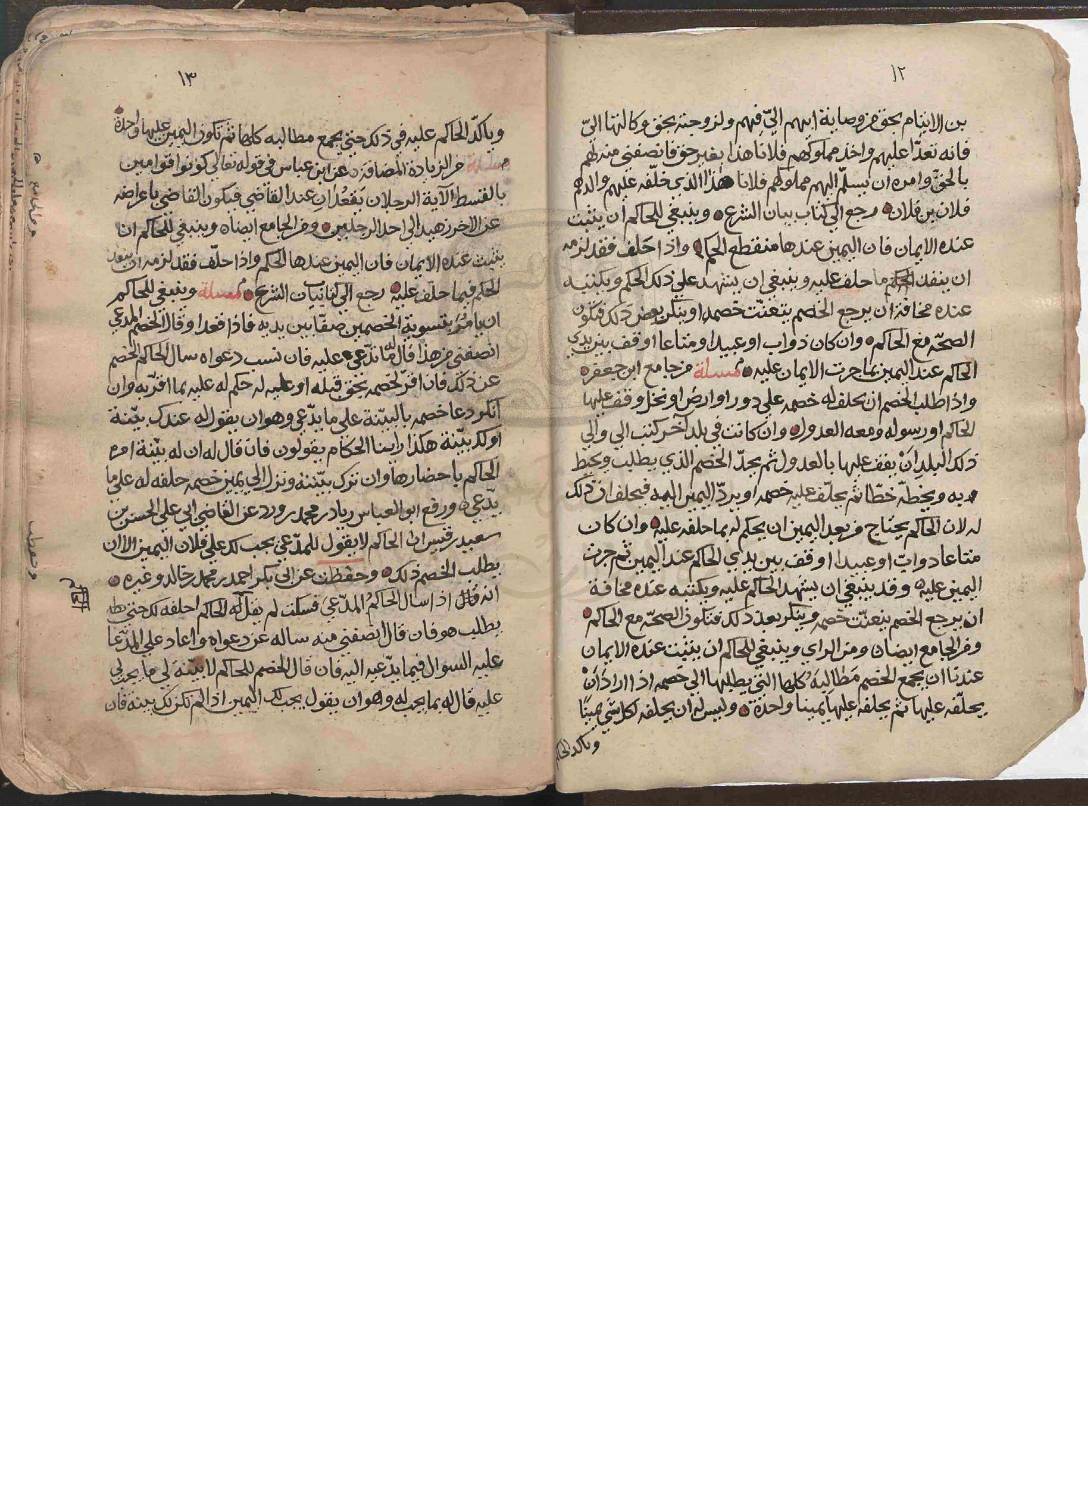 ١٢
بن الايتام بحق من وصاية ابيهم اليّ فيهم ولزوجته بحق وكالتها اليّ
فانه تعدّا عليهم واخذ مملوكهم فلانا هذا بغير حق فانصفني منه لهم
بالحق وامره ان يسلّم اليهم مملوكهم فلانا هذا الذي خلّفه عليهم والدهم
فلان بن فلان رجع الي كتاب بيان الشرع وينبغي للحاكم ان يثبت
عنده الايمان فان اليمين عندها منقطع الحكم واذا حلف فقد لزمه
ان ينفذ الحكم ما حلف عليه وينبغي ان يشهد علي ذلك الحكم ويكتبه
عنده مخافة ان يرجع الخصم يتعنّت خصمه او ينكر بعض ذلك فتكون
الصحّه مع الحاكم وان كان دواب او عبيدا او متاعا اوقف بين يدي
الحاكم عند اليمين بما جرت الايمان عليه مسلة من جامع ابن جعفر
واذا طلب الخصم ان يحلف له خصمه علي دور او ارض او نخل وقف عليها
الحاكم او رسوله ومعه العدول وان كانت في بلد آخر كتب الي والي
ذلك البلد ان يقف عليها بالعدول ثم يحدّ الخصم الذي يطلب ويخط
به ويخطّه خطا ثم يحلّف عليه خصمه او يردّ اليمين اليه فيحلف ان ذلك
له لان الحاكم يحتاج من بعد اليمين ان يحكم له بما حلفه عليه وان كان
متاعا دوابّ او عبيدا اوقف بين يدي الحاكم عند اليمين ثم جرت
اليمين عليه وقد ينبغي ان يشهد الحاكم عليه ويكتبه عنده مخافة
ان يرجع الخصم يتعنّت خصمه وينكر بعد ذلك فتكون الصحّه مع الحاكم
ومن الجامع ايضا ومن الراي وينبغي للحاكم ان يثبت عنده الايمان
عندنا ان يجمع الخصم مطالبه كلها التي يطلبها الي خصمه اذا اراد ان
يحلّفه عليها ثم يحلفه عليها يمينا واحدة وليس له ان يحلفه لكل شي يمينًا
وياكد الحاكم
١٣
وياكدّ الحاكم عليه في ذلك حتي يجمع مطالبه كلها ثم تكون اليمين عليها واحدة
مسلة من الزيادة المضافة عن ابن عباس في قوله تعالي كونوا قوامين
بالقسط الآية الرجلان يقعدان عند القاضي فيكون القاضي باعراضه
عن الآخر زهيد الي احد الرجلين ومن الجامع ايضا وينبغي للحاكم ان
يثبت عنده الايمان فان اليمين عندها الحكم واذا حلّف فقد لزمه ان ينفذ
الحكم فيما حلف عليه رجع الي كتاب بيان الشرع مسلة وينبغي للحاكم
ان يامر بتسوية الخصمين صفّا بين يديه فاذا قعدا وقال الخصم المدعي
انصفني من هذا قال ما تدّعي عليه فان نسب دعواه سال الحاكم الخصم
عن ذلك فان اقرّ لخصمه بحق قبله او عليه له حكم له عليه بما اقر به وان
انكر دعا خصمه بالبيّنة علي ما يدّعي وهو ان يقول له عندك بيّنة
اولك بيّنة هكذا راينا الحكام يقولون فان قال له ان له بيّنة امر
الحاكم باحضارها وان ترك بيّنته ونزل الي يمين خصمه حلفه له علي ما
يدّعي ورفع ابو العباس زياد بن محمد بن ورد عن القاضي ابي علي الحسن بن
سعيد بن قيس ان الحاكم لا يقول للمدّعي يجب لك علي فلان اليمين الا ان
يطلب الخصم ذلك وحفظت عن ابي بكر احمد بن محمد بن خالد وغيره
انه قال اذا سال الحاكمُ المدّعي فسكت لم يقل له الحاكم احلفه لك حتي
يطلب هو فان قال انصفني منه ساله عن دعواه واعاد علي المدّعا
عليه السوال فيما يدّعيه اليه فان قال الخصم للحاكم لا بيّنة لي ما يجب لي
عليه قال له بما يجب له وهو ان يقول يجب لك اليمين اذا لم تكن لك بينه فان
وحفظت